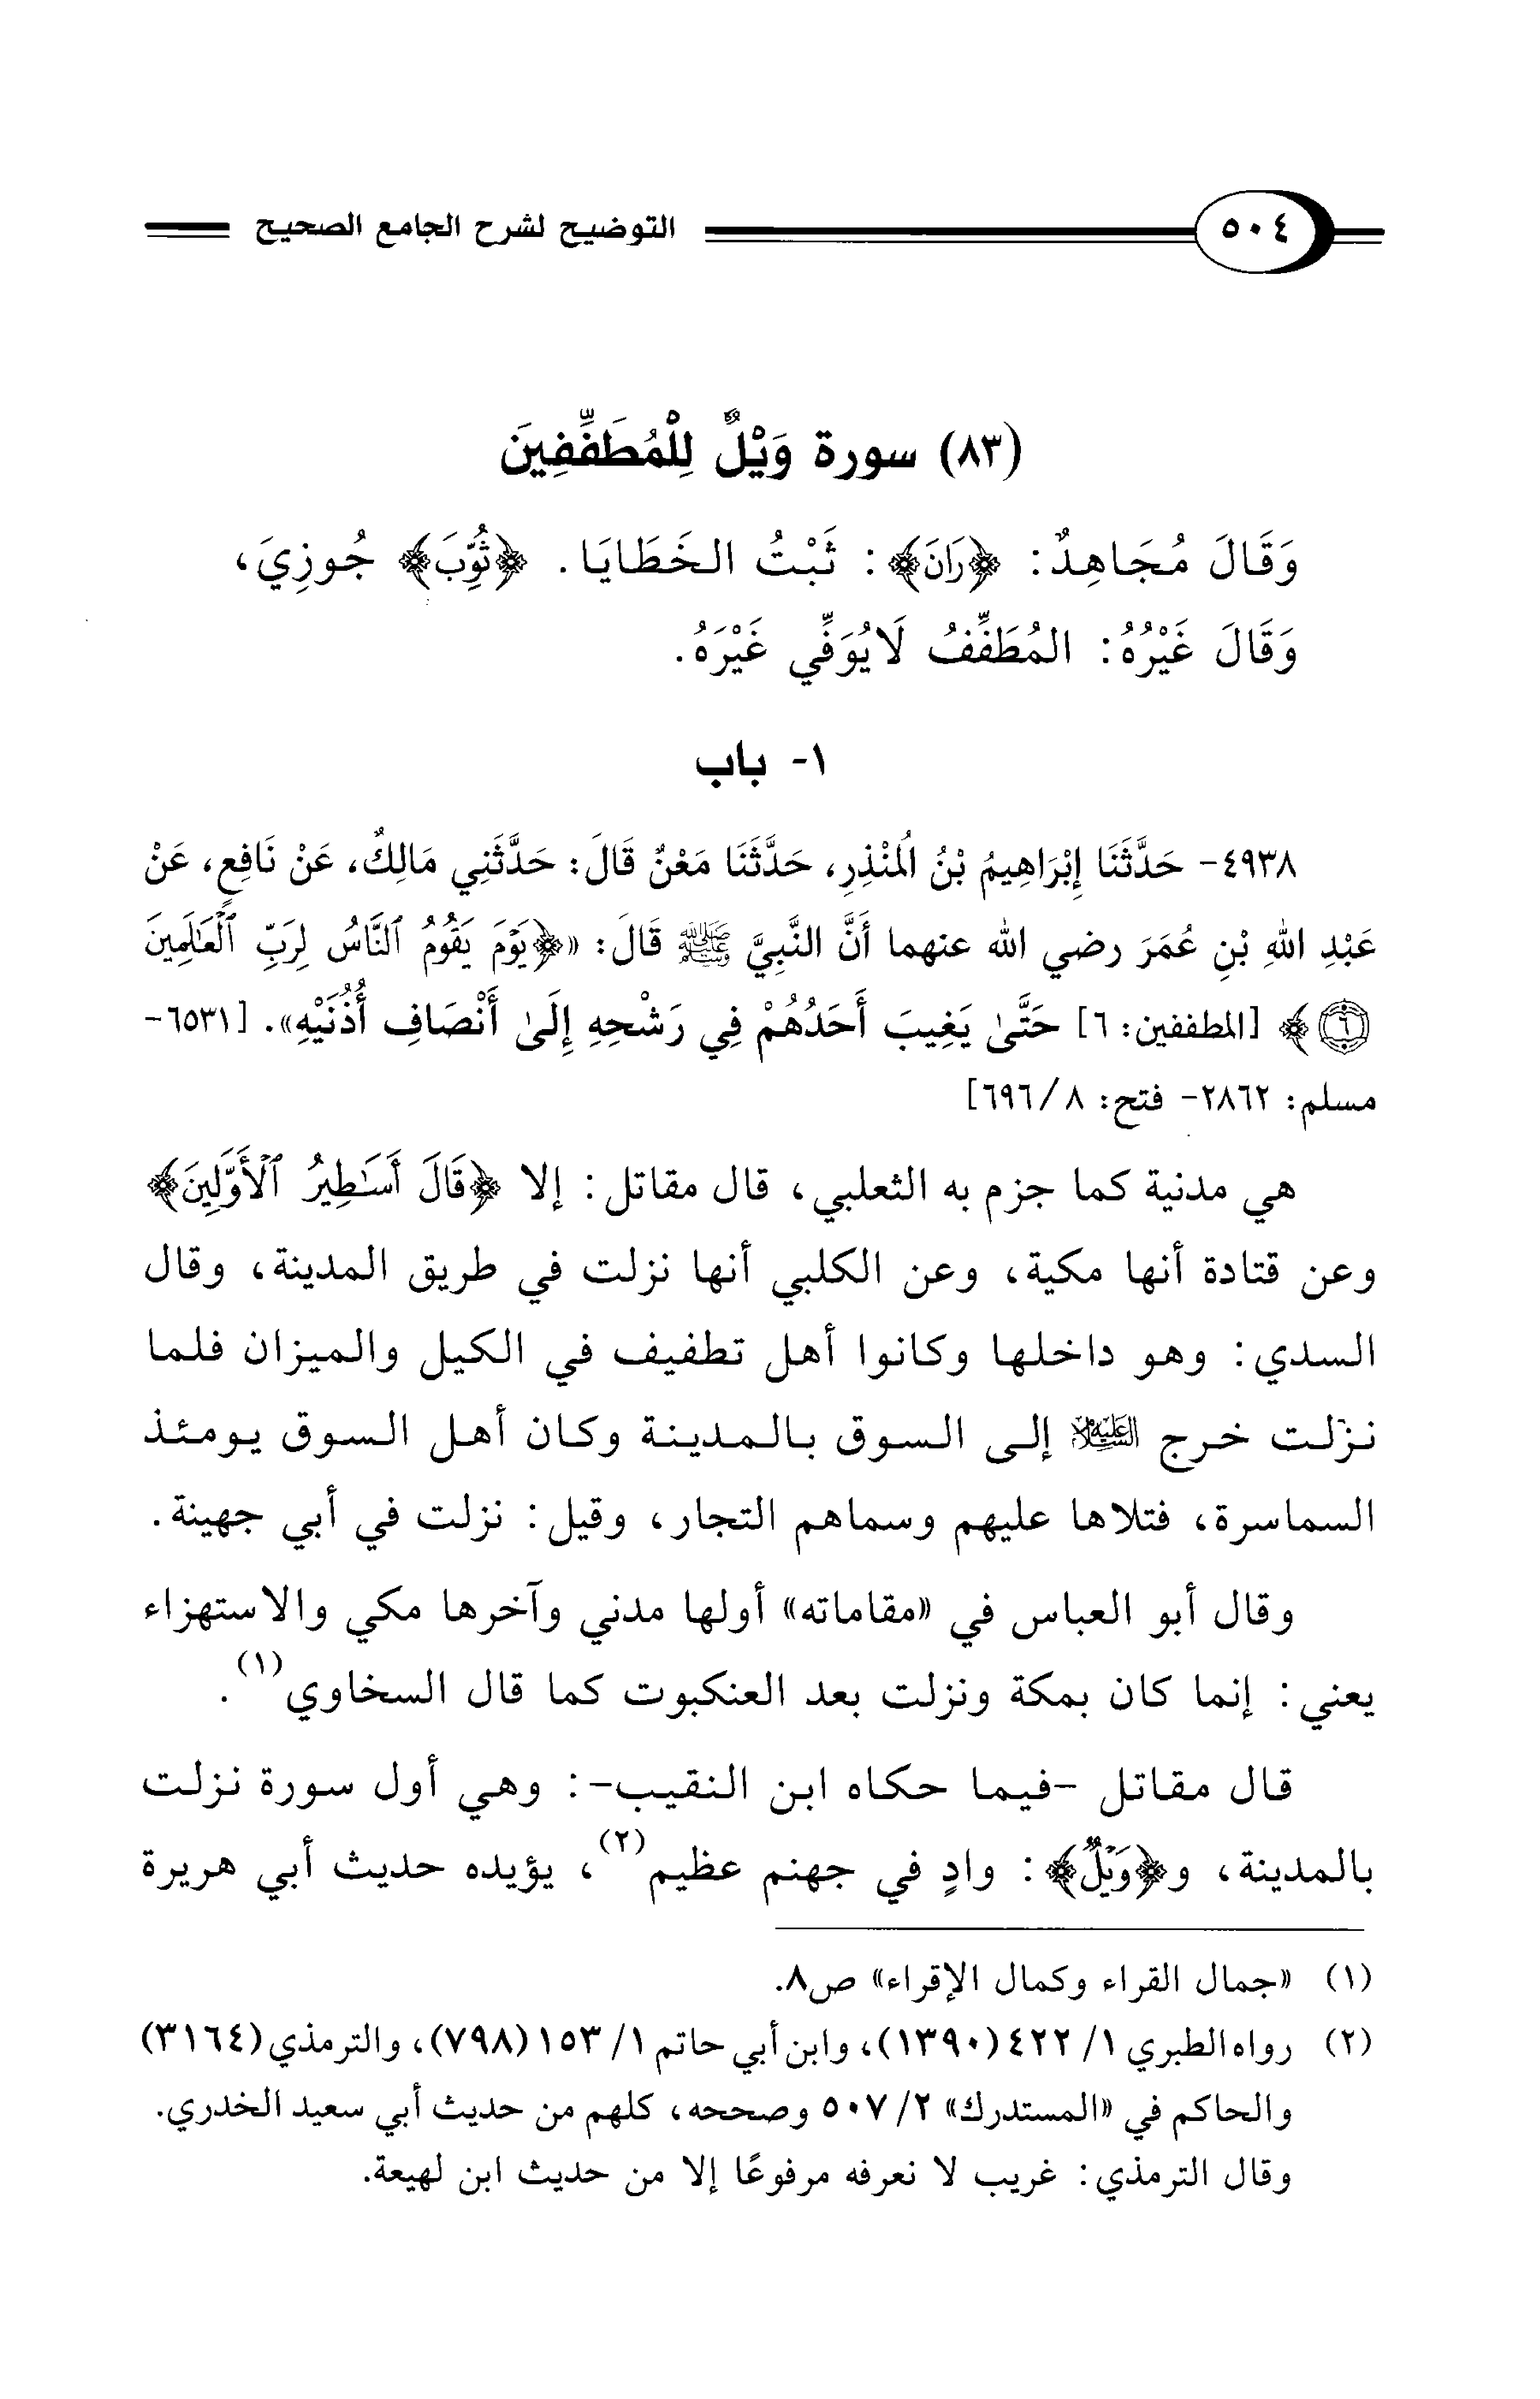 ٥٠٤ التوضيح لشرح الجامع الصحيح
(٨٣) سورة وَيْلٌ لِلْمُطَفِّفِينَ
وَقَالَ مُجَاهِدٌ: ﴿رَانَ﴾: ثَبْتُ الخَطَايَا. ﴿ثُوِّبَ﴾ جُوزِيَ،
وَقَالَ غَيْرُهُ: المُطَفِّفُ لَايُوَفِّي غَيْرَهُ.
١- باب
٤٩٣٨- حَدَّثَنَا إِبْرَاهِيمُ بْنُ الُمنْذِرِ، حَدَّثَنَا مَعْنٌ قَالَ: حَدَّثَنِي مَالِكٌ، عَنْ نَافِعٍ، عَنْ
عَبْدِ اللهِ بْنِ عُمَرَ رضي الله عنهما أَنَّ النَّبِيَّ ﷺ قَالَ: «﴿يَوْمَ يَقُومُ ٱلنَّاسُ لِرَبِّ ٱلْعَٰلَمِينَ
٦﴾ [المطففين: ٦] حَتَّىٰ يَغِيبَ أَحَدُهُمْ فِي رَشْحِهِ إِلَىٰ أَنْصَافِ أُذُنَيْهِ». [٦٥٣١-
مسلم: ٢٨٦٢- فتح: ٨/ ٦٩٦]
هي مدنية كما جزم به الثعلبي، قال مقاتل: إلا ﴿قَالَ أَسَٰطِيرُ ٱلْأَوَّلِينَ﴾
وعن قتادة أنها مكية، وعن الكلبي أنها نزلت في طريق المدينة، وقال
السدي: وهو داخلها وكانوا أهل تطفيف في الكيل والميزان فلما
نزلت خرج عليه السلام إلى السوق بالمدينة وكان أهل السوق يومئذ
السماسرة، فتلاها عليهم وسماهم التجار، وقيل: نزلت في أبي جهينة.
وقال أبو العباس في «مقاماته» أولها مدني وآخرها مكي والاستهزاء
يعني: إنما كان بمكة ونزلت بعد العنكبوت كما قال السخاوي(١).
قال مقاتل -فيما حكاه ابن النقيب-: وهي أول سورة نزلت
بالمدينة، و﴿وَيْلٌ﴾: وادٍ في جهنم عظيم(٢)، يؤيده حديث أبي هريرة
(١) «جمال القراء وكمال الإقراء» ص٨.
(٢) رواه الطبري ١/ ٤٢٢ (١٣٩٠)، وابن أبي حاتم ١/ ١٥٣ (٧٩٨)، والترمذي (٣١٦٤)
والحاكم في «المستدرك» ٢/ ٥٠٧ وصححه، كلهم من حديث أبي سعيد الخدري.
وقال الترمذي: غريب لا نعرفه مرفوعًا إلا من حديث ابن لهيعة.